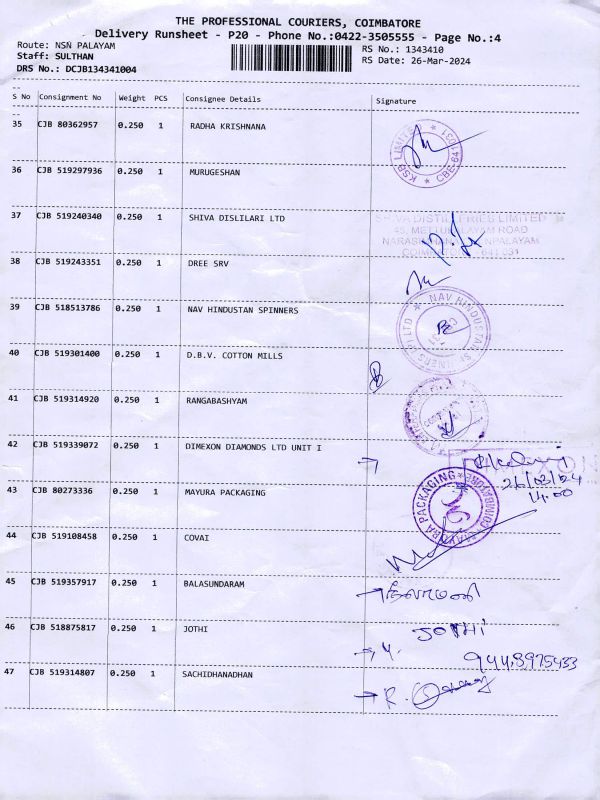 THE PROFESSIONAL COURIERS, COIMBATORE
Delivery Runsheet - P20 - Phone No.:0422-3505555 - Page No.:4
Route: NSN PALAYAM RS No.: 1343410
Staff: SULTHAN RS Date: 26-Mar-2024
DRS No.: DCJB134341004
S No Consignment No Weight PCS Consignee Details Signature
35 CJB 80362957 0.250 1 RADHA KRISHNANA
KSB LIMITED * CBE-641031 *
36 CJB 519297936 0.250 1 MURUGESHAN
37 CJB 519240340 0.250 1 SHIVA DISLILARI LTD
SHIVA DISTILLERIES LIMITED
45, METTUPALAYAM ROAD
38 CJB 519243351 0.250 1 DREE SRV
39 CJB 518513786 0.250 1 NAV HINDUSTAN SPINNERS
NAV HINDUSTAN SPINNERS (P) LTD
40 CJB 519301400 0.250 1 D.B.V. COTTON MILLS
41 CJB 519314920 0.250 1 RANGABASHYAM
42 CJB 519339072 0.250 1 DIMEXON DIAMONDS LTD UNIT I
26/03/24
14.00
43 CJB 80273336 1 MAYURA PACKAGING
MAYURA PACKAGING * COIMBATORE
44 CJB 519108458 0.250 1 COVAI
45 CJB 519357917 0.250 1 BALASUNDARAM
46 CJB 518875817 0.250 1 JOTHI
JOTHI
47 CJB 519314807 0.250 1 SACHIDHANADHAN